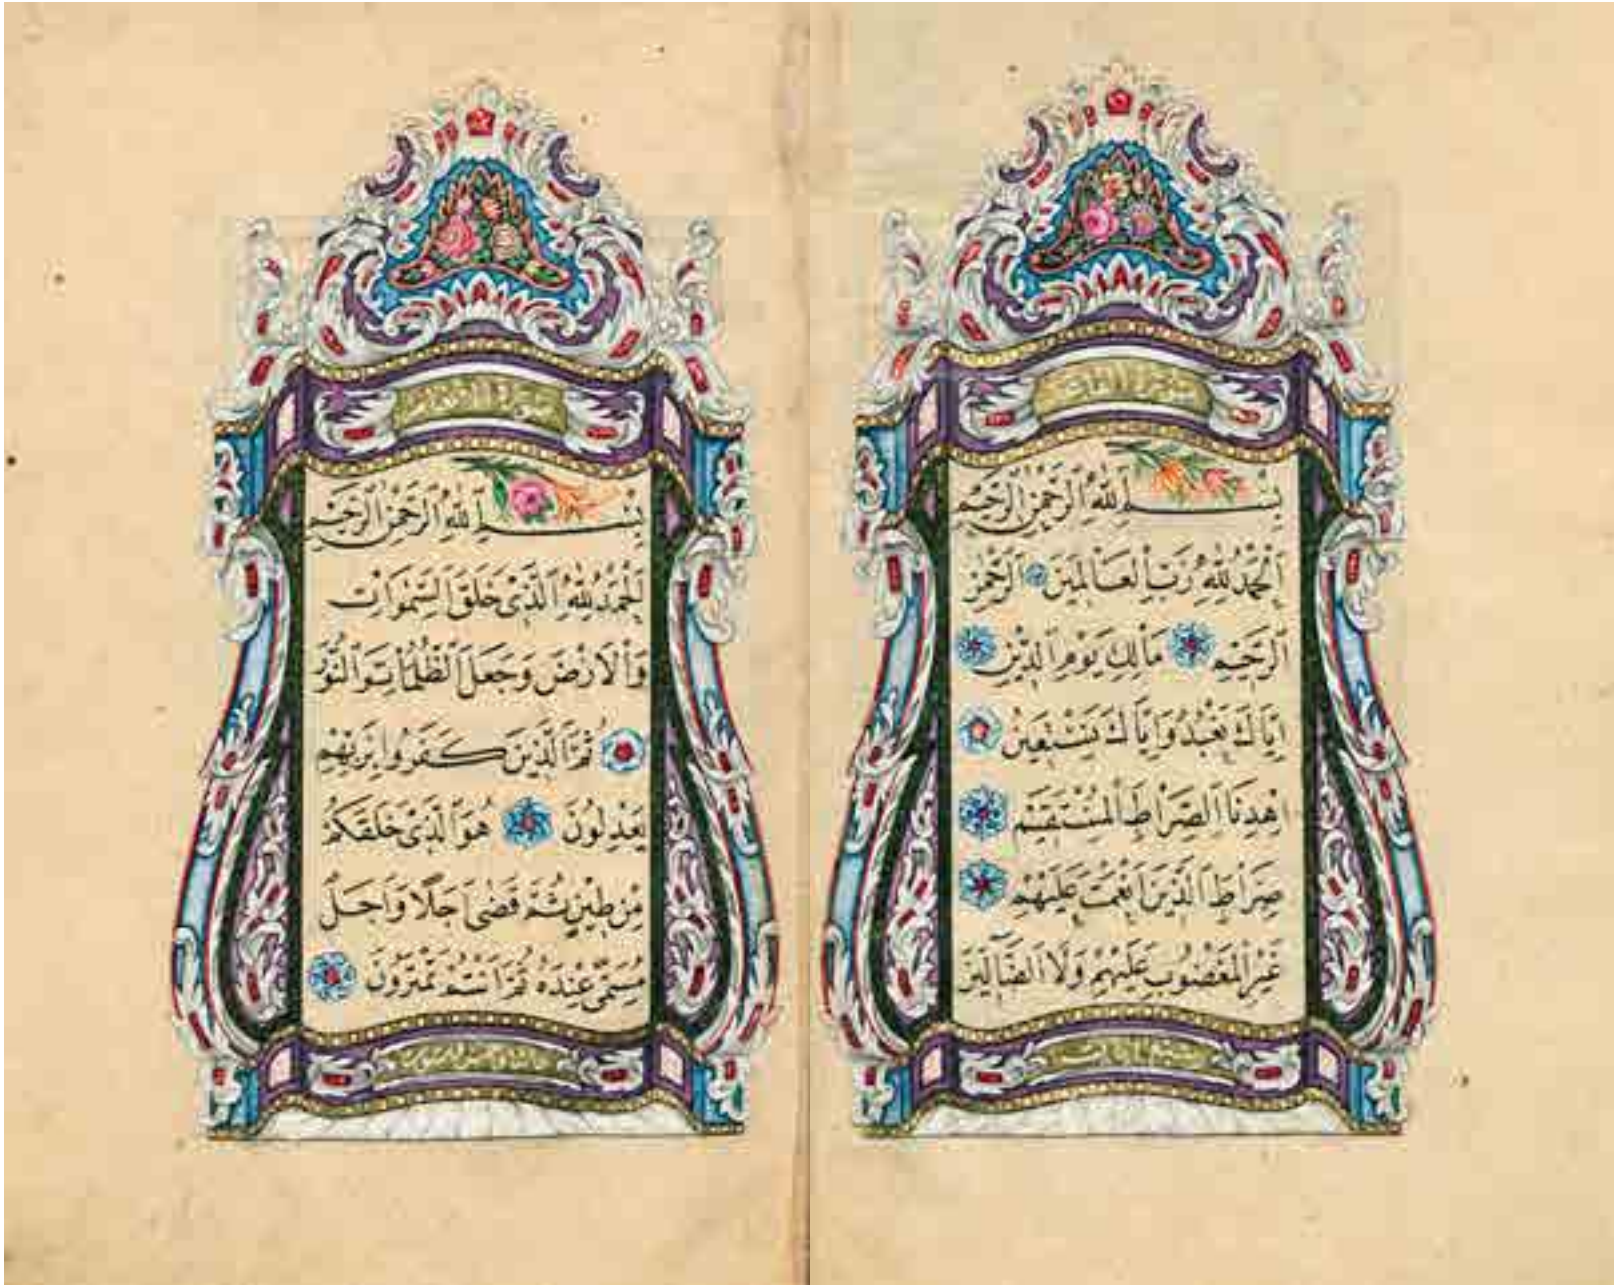 بِسْمِ اللّٰهِ الرَّحْمٰنِ الرَّحِيمِ
اَلْحَمْدُ لِلّٰهِ رَبِّ الْعَالَمِينَ الرَّحْمٰنِ
الرَّحِيمِ مَالِكِ يَوْمِ الدِّينِ
اِيَّاكَ نَعْبُدُ وَاِيَّاكَ نَسْتَعِينُ
اِهْدِنَا الصِّرَاطَ الْمُسْتَقِيمَ
صِرَاطَ الَّذِينَ اَنْعَمْتَ عَلَيْهِمْ
غَيْرِ الْمَغْضُوبِ عَلَيْهِمْ وَلَا الضَّالِّينَ
بِسْمِ اللّٰهِ الرَّحْمٰنِ الرَّحِيمِ
اَلْحَمْدُ لِلّٰهِ الَّذِي خَلَقَ السَّمٰوَاتِ
وَالْاَرْضَ وَجَعَلَ الظُّلُمَاتِ وَالنُّورَ
ثُمَّ الَّذِينَ كَفَرُوا بِرَبِّهِمْ
يَعْدِلُونَ هُوَ الَّذِي خَلَقَكُمْ
مِنْ طِينٍ ثُمَّ قَضٰى اَجَلًا وَاَجَلٌ
مُسَمًّى عِنْدَهُ ثُمَّ اَنْتُمْ تَمْتَرُونَ